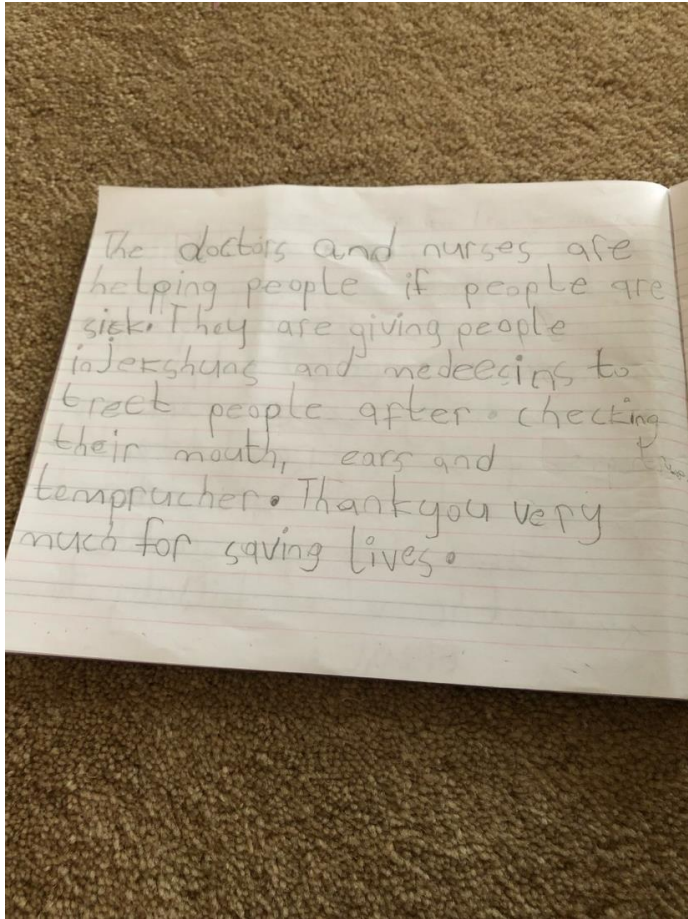 The doctors and nurses are
helping people if people are
sick. They are giving people
injekshuns and medeecins to
treet people after checking
their mouth, ears and
temprucher. Thankyou very
much for saving lives.